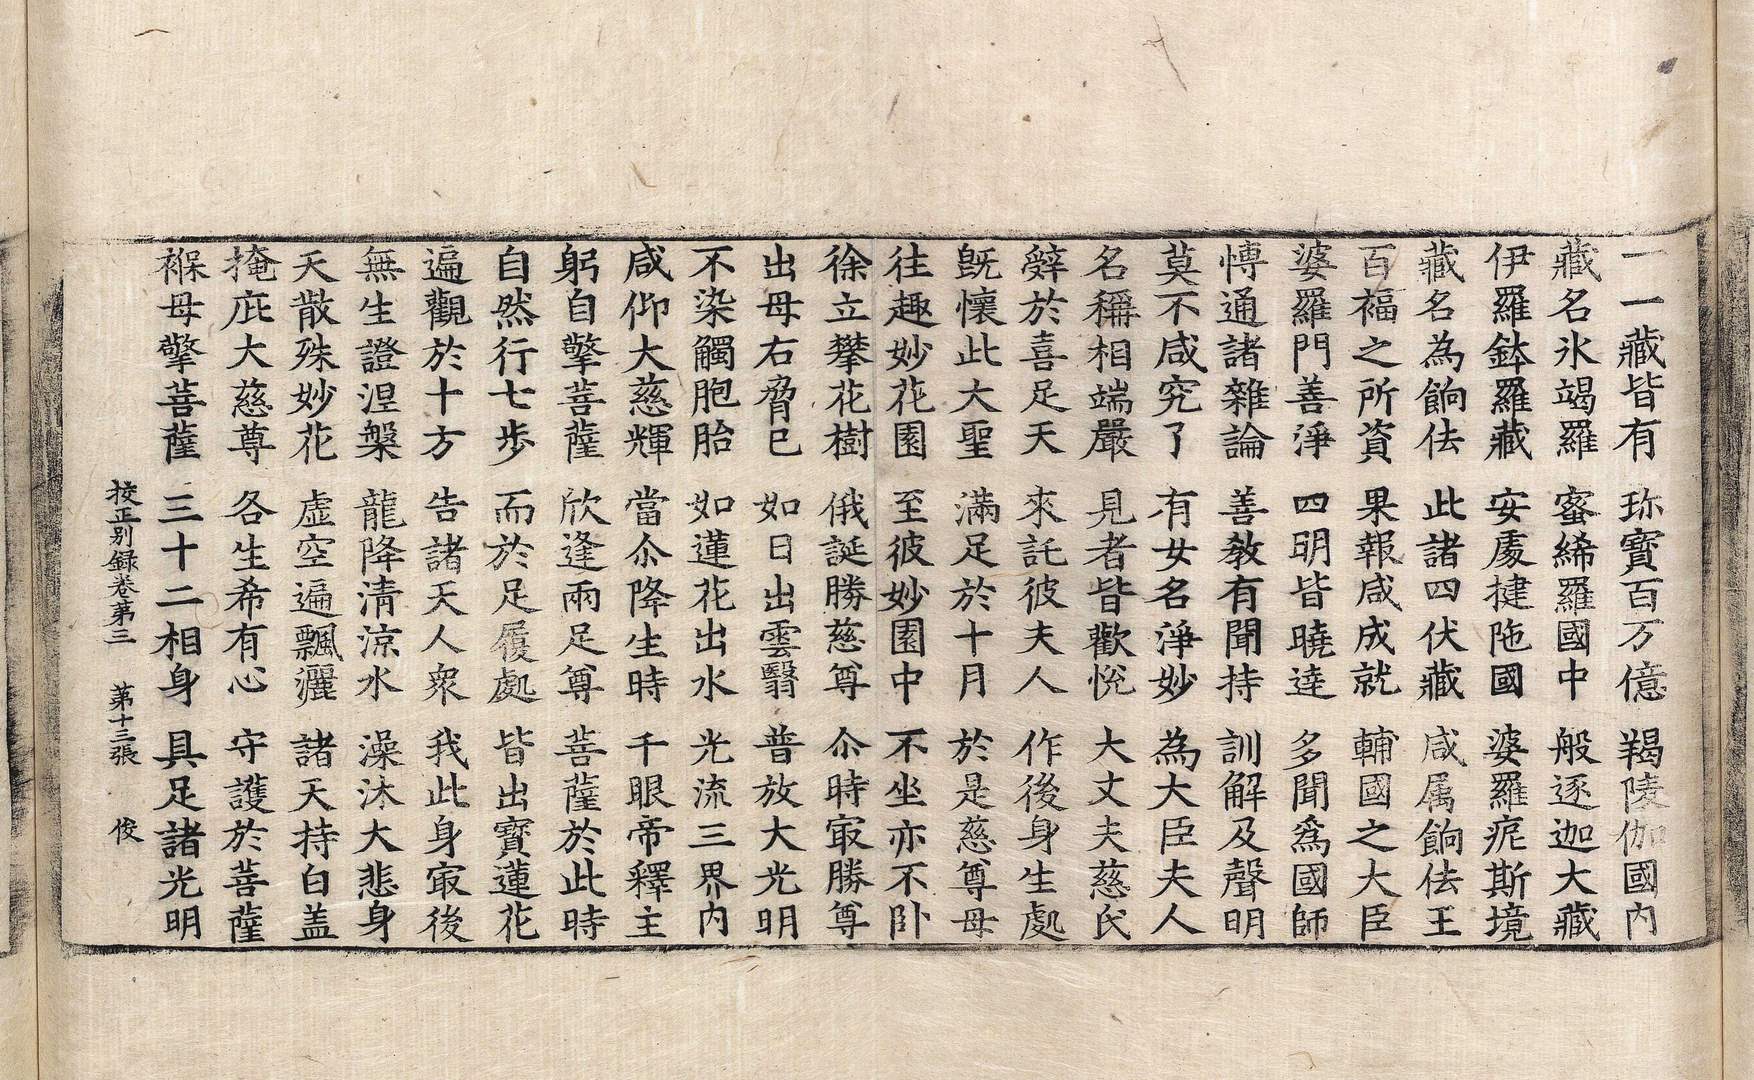 一一藏皆有 珎寶百万億 羯陵伽國內
藏名氷竭羅 蜜絺羅國中 般逐迦大藏
伊羅鉢羅藏 安處揵陁國 婆羅痆斯境
藏名為餉佉 此諸四伏藏 咸属餉佉王
百福之所資 果報咸成就 輔國之大臣
婆羅門善淨 四明皆曉達 多聞爲國師
愽通諸雜論 善教有聞持 訓解及聲明
莫不咸究了 有女名淨妙 為大臣夫人
名稱相端嚴 見者皆歡悅 大丈夫慈氏
辭於喜足天 來託彼夫人 作後身生處
旣懷此大聖 滿足於十月 於是慈尊母
往趣妙花園 至彼妙園中 不坐亦不卧
徐立攀花樹 俄誕勝慈尊 尒時㝡勝尊
出母右脅已 如日出雲翳 普放大光明
不染觸胞胎 如蓮花出水 光流三界內
咸仰大慈輝 當尒降生時 千眼帝釋主
躬自擎菩薩 欣逢兩足尊 菩薩於此時
自然行七步 而於足履處 皆出寶蓮花
遍觀於十方 告諸天人衆 我此身㝡後
無生證涅槃 龍降清涼水 澡沐大悲身
天散殊妙花 虛空遍飄灑 諸天持白盖
掩庇大慈尊 各生希有心 守護於菩薩
褓母擎菩薩 三十二相身 具足諸光明
挍正别録卷第三 第十三張 俊